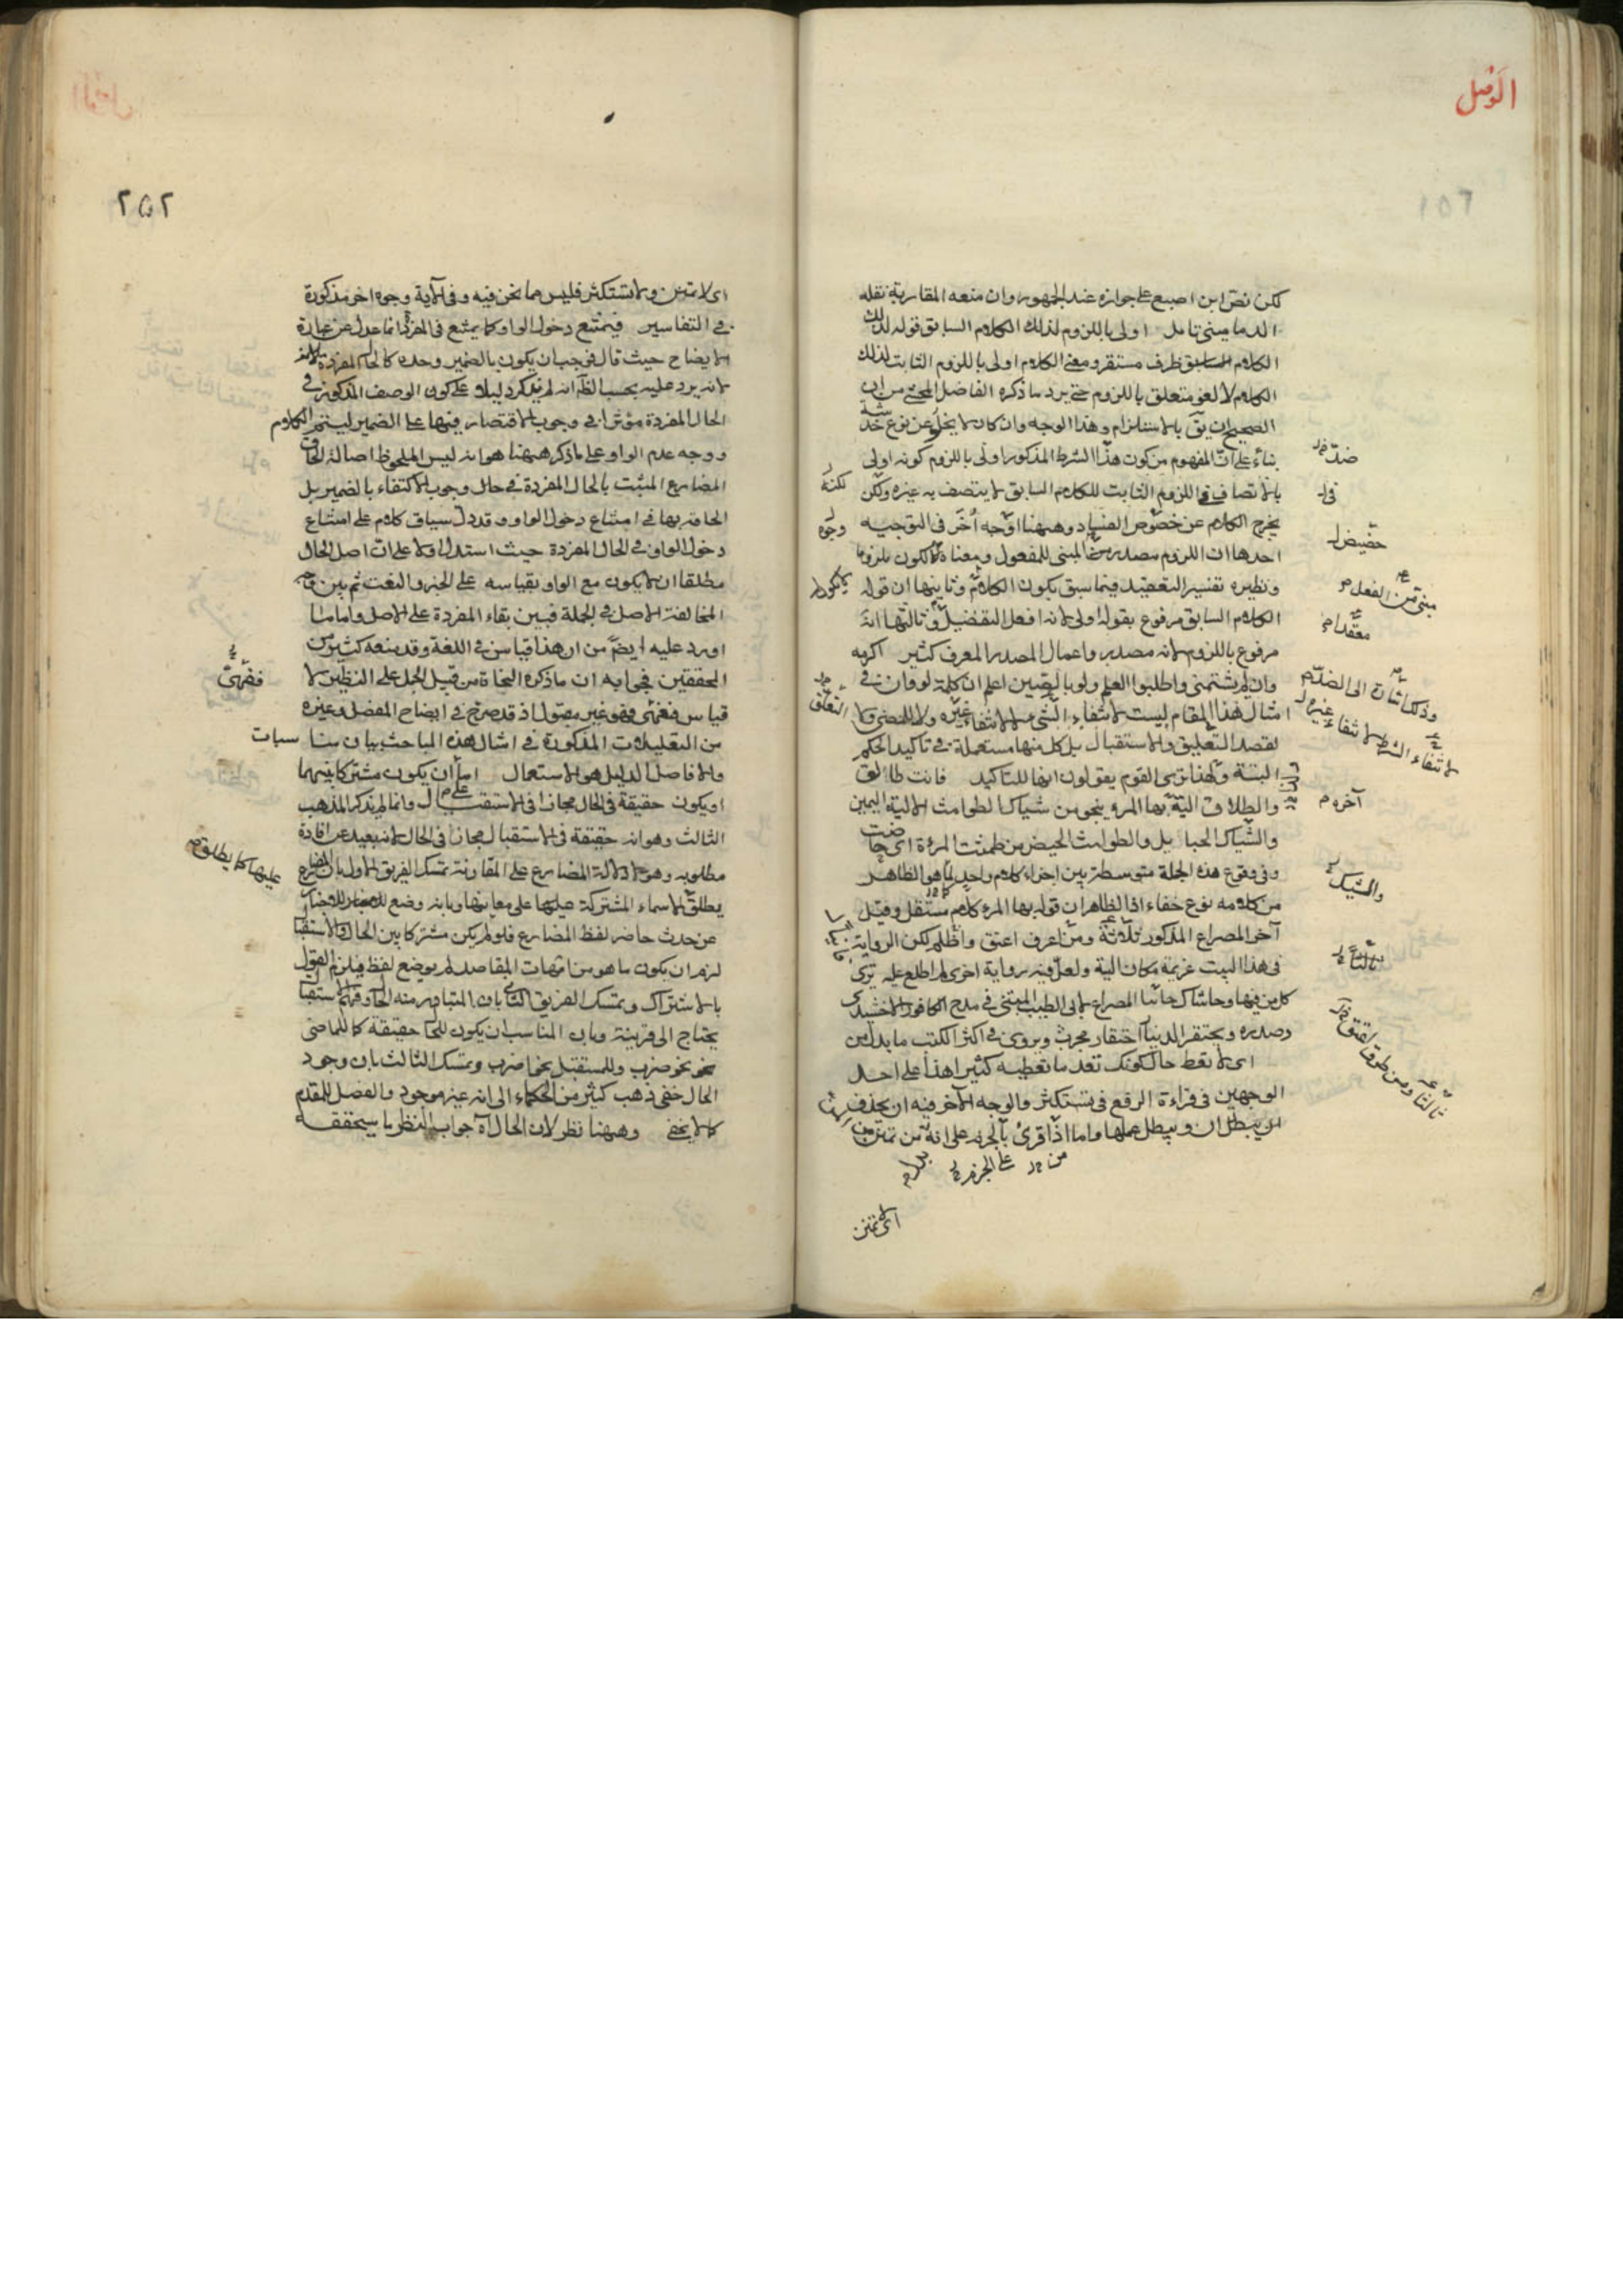 الوصل
لكن نص ابن اصبع على جوازه عند الجمهور وان منعه المقاربة نقله
الدماميني تامل اولى باللزوم لذلك الكلام السابق قوله لذلك
الكلام السابق ظرف مستقر ومعنى الكلام اولى باللزوم الثابت لذلك
الكلام لا لغو متعلق باللزوم حتى يرد ما ذكره الفاضل المحشي من ان
الصحيح ان يق بالاستلزام وهذا الوجه وان كان لا يخلو عن نوع خد شة
بناء على ان المفهوم من كون هذا الشرط المذكور اولى باللزوم كونه اولى
بالاتصاف في اللزوم الثابت للكلام السابق لا يتصف به غيره ولكن
يخرج الكلام عن خصوص الفساد وههنا اوجه اخر في التوجيه
احدها ان اللزوم مصدر من المبنى للمفعول ومعناه الكون ملزوما
ونظيره تفسير التعقيد فيما سبق بكون الكلام وثانيها ان قوله
الكلام السابق مرفوع بقوله اولى لانه افعل التفضيل وثالثها انه
مرفوع باللزوم لانه مصدر واعمال المصدر المعرف كثير اكرمه
وان لم يشتمنى واطلبوا العلم ولو بالصين اعلم ان كلمة لو وان في
امثال هذا المقام ليست لانتفاء الشي لانتفاء غيره ولا للمضى ولا
لقصد التعليق والاستقبال بل كل منها مستعملة في تاكيد الحكم
البتة ولهذا ترى القوم يقولون انها للتاكيد فانت طالق
والطلاق الية بها المرء ينجو من شباك الطوامث الالية اليمين
والشباك الحبايل والطوامث الحيض من طمثت المرءة اى حاضت
وفى وقوع هذه الجملة متوسطة بين اجزاء كلام واحد كما هو الظاهر
من كلامه نوع خفاء اذ الظاهر ان قوله بها المرء كلام مستقل وقيل
آخر المصراع المذكور ثلاثة ومن اعرف اعتق واظلم لكن الرواية
فى هذا البيت عزيمة مكان الية ولعل فيه رواية اخرى لم اطلع عليه ترى
كل من فيها وحاشاك فانيا المصراع لابى الطيب المتنبى فى مدح الكافور الاخشيدى
وصدره ويحتقر الدنيا احتقار مجرب ويروى فى اكثر الكتب ما بدل من
اى لا تعط حال كونك تعد ما تعطيه كثيرا هذا على احد
الوجهين فى قراءة الرفع فى تستكثر والوجه الآخر فيه ان يحذف
ان ويبطل عملها واما اذا قرئ بالجزم على انه من تمنن
اى لا تمنن
ضد
لكنه
وجوه
مبنى من الفعل
آخره م
والشبك
ثالثا
٢٥٢
اى لا تمنن ولا تستكثر فليس مما نحن فيه وفى الآية وجوه اخر مذكورة
فى التفاسير فيمتنع دخول الواو كما يمتنع فى المفرد انما عدل عن عبارة
الايضاح حيث قال فيجب ان يكون بالضمير وحده كالحال المفردة
لانه يرد عليه بحسب الظ انه لم يذكر دليلا على كون الوصف المذكور فى
الحال المفردة مؤثرا فى وجوب الاقتصار فيها على الضمير ليتم الكلام
ووجه عدم الواو على ما ذكر ههنا هو انه ليس الملحوظ اصالة الحاق
المضارع المثبت بالحال المفردة فى حال وجوب الاكتفاء بالضمير بل
الحاقه بها فى امتناع دخول الواو وقد دل سياق كلامه على امتناع
دخول الواو فى الحال المفردة حيث استدل اولا على ان اصل الحال
مطلقا ان لا يكون مع الواو بقياسه على الخبر والنعت ثم بين وجه
المخالفة الاصل فى الجملة فبين بقاء المفردة على الاصل واما ما
اورد عليه ايضا من ان هذا قياس فى اللغة وقد منعه كثير من
المحققين فجوابه ان ما ذكره النحاة من قبيل الحمل على النظير لا
قياس فقهى فهو غير مقبول اذ قد صرح فى ايضاح المفصل وغيره
من التعليلات المذكورة فى امثال هذه المباحث بيان مناسبات
والا فاصل الدليل هو الاستعمال اما ان يكون مشتركا بينهما
او يكون حقيقة فى الحال مجازا فى الاستقبال وانما لم يذكر المذهب
الثالث وهو انه حقيقة فى الاستقبال مجاز فى الحال لانه بعيد عن افادة
مطلوبه وهو دلالة المضارع على المقارنة تمسك الفريق الاول بان المضارع
يطلق الاسماء المشتركة على معانيها وبانه وضع للاخبار
عن حدث حاضر لفظ المضارع فلو لم يكن مشتركا بين الحال والاستقبال
لزم ان يكون ما هو من امهات المقاصد لم يوضع لفظ فيلزم القول
بالاشتراك وتمسك الفريق الثانى بان المتبادر منه الحال وفهم الاستقبال
يحتاج الى قرينة وبان المناسب ان يكون للحال حقيقة كما للماضى
نحو ضرب وللمستقبل نحو اضرب وتمسك الثالث بان وجود
الحال خفى ذهب كثير من الحكماء الى انه غير موجود والفصل للمقدم
كما لا يخفى وههنا نظر لان الحال آه جواب النظر ما سيحققه
فقهى
عليها كما يطلق م